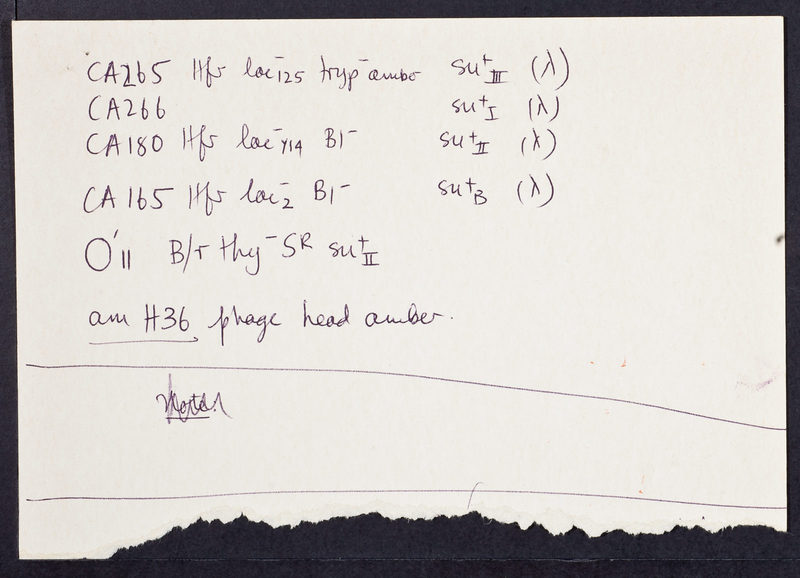 CA265 Hfr lac⁻125 tryp⁻amber su⁺III (λ)
CA266 su⁺I (λ)
CA180 Hfr lac⁻Y14 B1⁻ su⁺II (λ)
CA165 Hfr lac⁻2 B1⁻ su⁺B (λ)
O'11 B/r thy⁻ Sᴿ su⁺II
am H36 phage head amber.